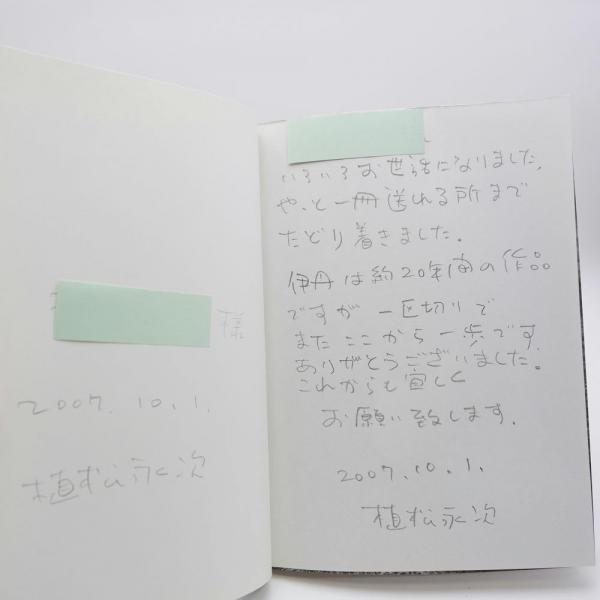 様
2007.10.1.
植松永次
いろいろお世話になりました。
やっと一冊送れる所まで
たどり着きました。
伊丹は約20年間の作品
ですが一区切りで
またここから一歩です
ありがとうございました。
これからも宜しく
お願い致します。
2007.10.1.
植松永次